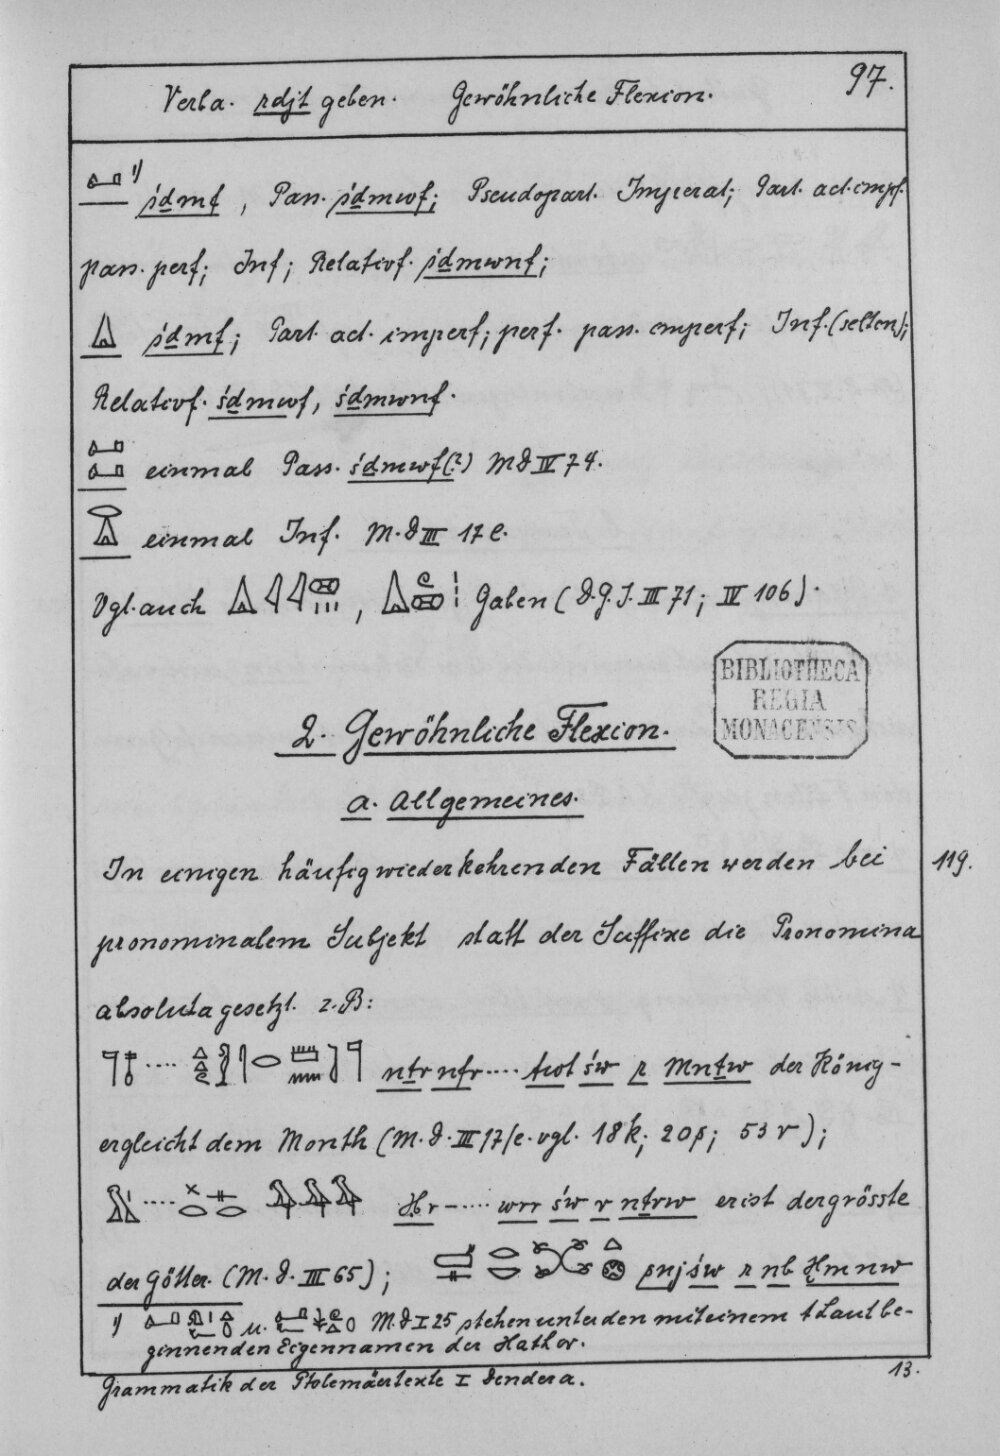 Verba. rdjt geben. Gewöhnliche Flexion. 97.
1) śḏmf, Pass. śḏmwf; Pseudopart. Imperat; Part. act. impf.
pass. perf; Inf; Relativf. śḏmwnf;
śḏmf; Part. act. imperf; perf. pass. imperf; Inf. (selten);
Relativf. śḏmwf, śḏmwnf.
einmal Pass. śḏmwf(?) M D IV 74.
einmal Inf. M. D III 17 e.
Vgl. auch , Gaben (D. G. I. III 71; IV 106).
BIBLIOTHECA
REGIA
MONACENSIS
2. Gewöhnliche Flexion.
a. Allgemeines.
In einigen häufig wiederkehrenden Fällen werden bei 119.
pronominalem Subjekt statt der Suffixe die Pronomina
absoluta gesetzt. z. B:
.... nṯr nfr .... twt św r Mnṯw der König -
ergleicht dem Month (M. D. III 17/e. vgl. 18 k; 20 p; 53 r);
.... Ḥr ..... wrr św r nṯrw er ist der grösste
der Götter. (M. D. III 65); pnj św r nb Ḫmnw
1) u. M. D I 25 stehen unter den mit einem t Laut be-
ginnenden Eigennamen der Hathor.
Grammatik der Ptolemäertexte I Dendera. 13.